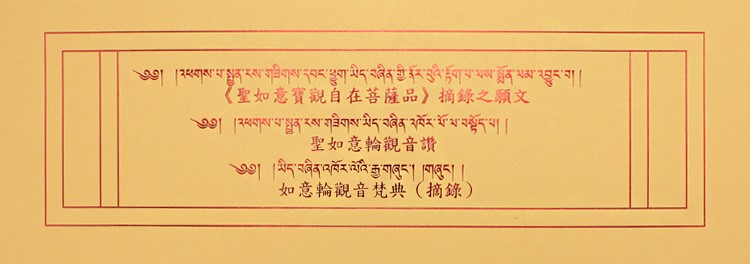 ༄༅། །འཕགས་པ་སྤྱན་རས་གཟིགས་དབང་ཕྱུག་ཡིད་བཞིན་གྱི་ནོར་བུའི་རྟོག་པ་ལས་སྨོན་ལམ་འབྱུང་བ། །
《聖如意寶觀自在菩薩品》摘錄之願文
༄༅། །འཕགས་པ་སྤྱན་རས་གཟིགས་ཡིད་བཞིན་འཁོར་ལོ་ལ་བསྟོད་པ། །
聖如意輪觀音讚
༄༅། །ཡིད་བཞིན་འཁོར་ལོའི་རྒྱ་གཞུང་། །གཞུང་། །
如意輪觀音梵典（摘錄）